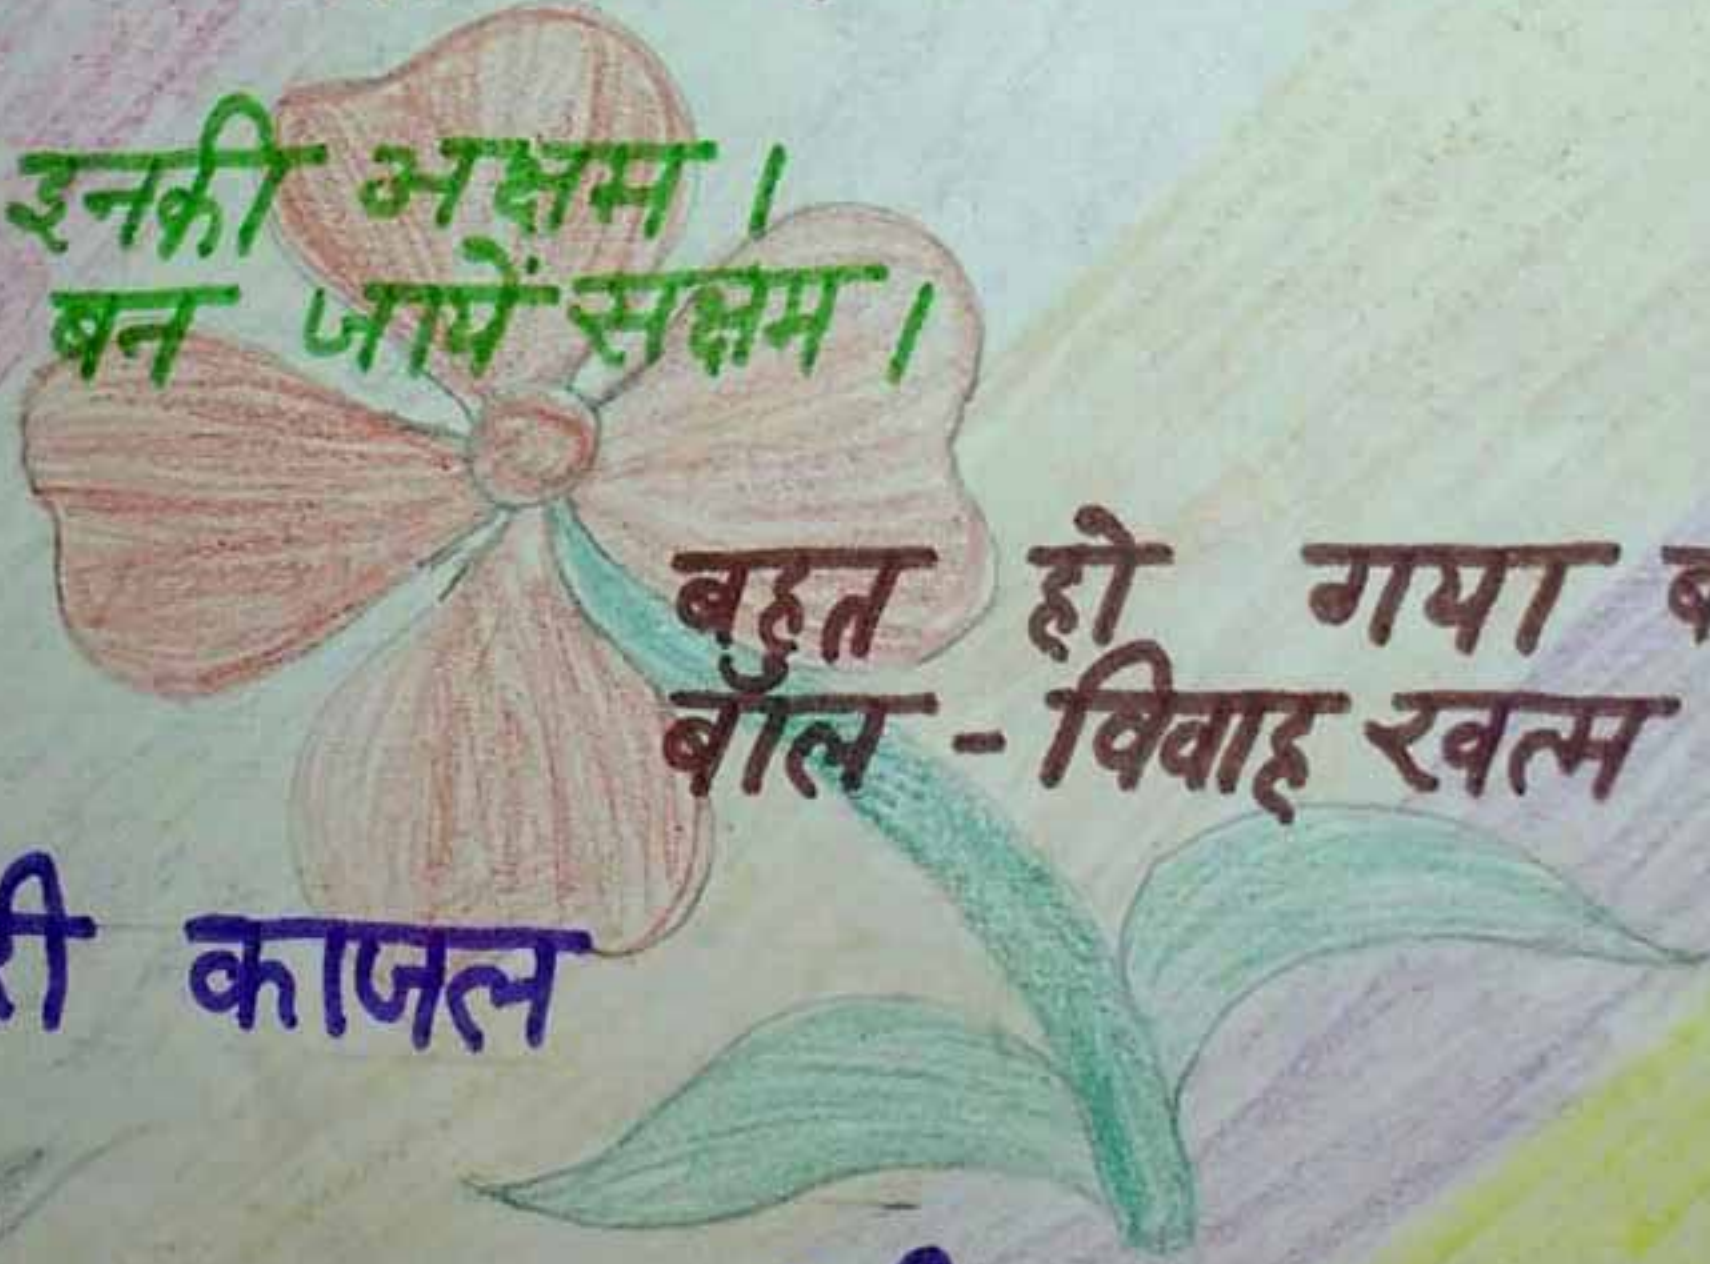 इनकी अक्षम ।
बन जायें सक्षम ।
बहुत हो गया
बॉल - विवाह खत्म
काजल